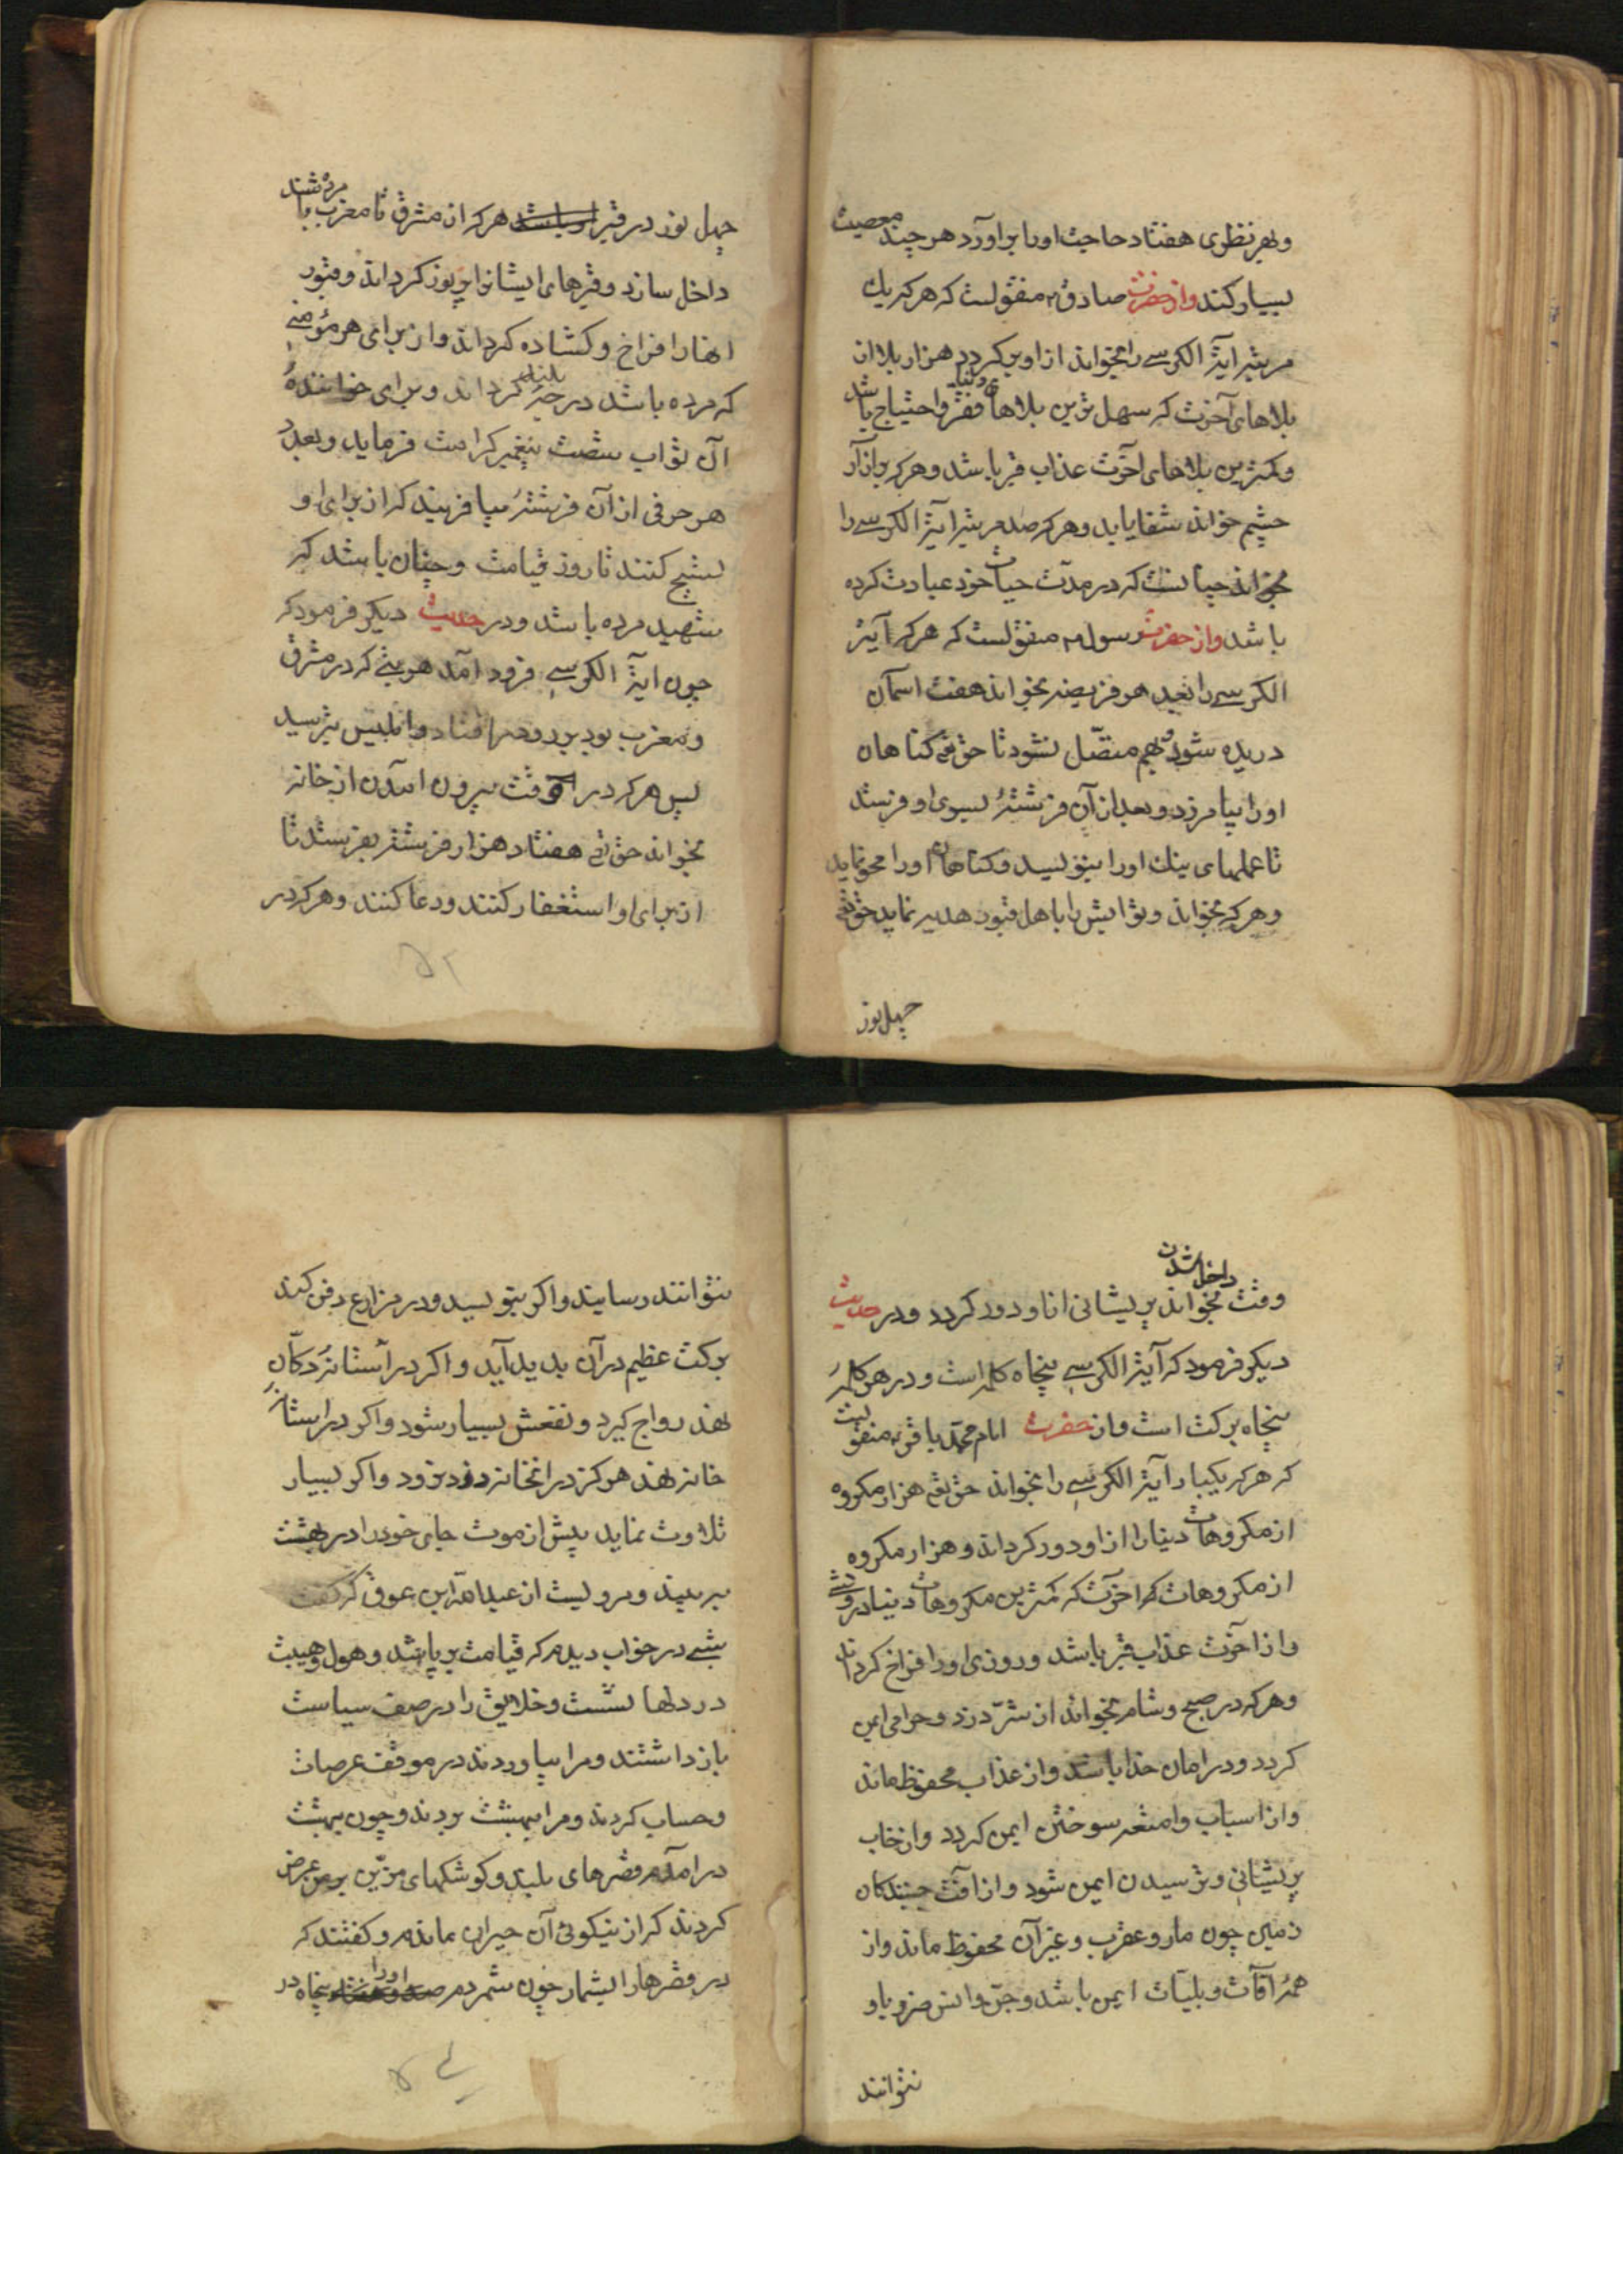 وبهر نظری هفتاد حاجت اورا براورد هر چند معصیت
بسیار کند واز حضرت صادق م منقولست که هر که یك
مرتبه ایة الکرسے را بخواند ازاو بر کردد هزار بلا از
بلاهای آخرت که سهل ترین بلاهای دنیا فقر واحتیاج باشد
وکمترین بلاهای اخرت عذاب قبر باشد وهر که بر
چشم خواند شفا یابد وهر که صد مرتبه ایة الکرسے را
بخواند چنانست که در مدت حیات خود عبادت کرده
باشد واز حضرت رسول م منقولست که هر که آیة
الکرسے را بعد هر فریضه بخواند هفت اسمان
دریده شود وبهم متصّل نشود تا حق تعے کناهان
اورا بیامرزد وبعد ازان فرشتهٔ بسوی او فرستد
تا عملهای نیك اورا بنویسد وکناهان اورا محو نماید
وهر که بخواند وثوابش را باهل قبور هدیه نماید حق تعے
چهل نور
چهل نور در قبر هر که از مشرق تا مغرب مرده باشند
داخل سازد وقبرهای ایشانرا پر نور کرداند وقبور
انهارا فراخ وکشاده کرداند واز برای هر مؤمنے
که مرده باشد درجهٔ بلند کرداند وبرای خوانندهٔ
آن ثواب شصت پیغمبر کرامت فرماید وبعدد
هر حرفی ازان فرشتهٔ بیافریند که از برای او
تسبیح کنند تا روز قیامت وچنان باشد که
شهید مرده باشد ودر حدیث دیکر فرمود که
چون ایة الکرسے فرود امد هر بتے که در مشرق
ومغرب بود برو در افتاد وابلیس بترسید
پس هر که در وقت بیرون امدن از خانه
بخواند حق تعے هفتاد هزار فرشته بفرستد تا
از برای او استغفار کنند ودعا کنند وهر که در
۵۲
وقت داخل شدن بخواند پریشانی از او دور کردد ودر حدیث
دیکر فرمود که آیة الکرسے پنجاه کلمه است ودر هر کلمهٔ
پنجاه برکت است واز حضرت امام محمّد باقر م منقولیست
که هر که یکبار آیة الکرسے را بخواند حق تعے هزار مکروه
از مکروهات دنیارا ازاو دور کرداند وهزار مکروه
از مکروهات اخرت که کمترین مکروهات دنیا درویشے
واز اخرت عذاب قبر باشد وروزی اورا فراخ کرداند
وهر که در صبح وشام بخواند از شرّ دزد وحرامی ایمن
کردد ودر امان خدا باشد واز عذاب محفوظ ماند
واز اسباب وامتعه سوختن ایمن کردد واز خاب
پریشانی وترسیدن ایمن شود واز افت جنبندکان
زمین چون مار وعقرب وغیر آن محفوظ ماند واز
همهٔ آفات وبلیّات ایمن باشد وجنّ وانس ضرر باو
نتوانند
نتوانند رسانیند واکر بنویسد ودر مزارع دفن کند
برکت عظیم درآن بدید آید واکر در آستانهٔ دکّان
نهند رواج کیرد ونفعش بسیار شود واکر در استانهٔ
خانه نهند هرکز درانخانه دزد نرود واکر بسیار
تلاوت نماید پیش از موت جای خودرا در بهشت
به بیند ومرویست از عبدالله ابن عوف که کفت
شبے در خواب دیدم که قیامت برپا شد وهول وهیبت
در دلها نشست وخلایق را در صف سیاست
بازداشتند ومرا بیاوردند در موقف عرصات
وحساب کردند ومرا ببهشت بردند وچون ببهشت
درامدم قصرهای بلند وکوشکهای مزیّن بر من عرض
کردند که از نیکوئی آن حیران ماندم وکفتند که
در قصرهارا بشمار چون شمردم پنجاه در